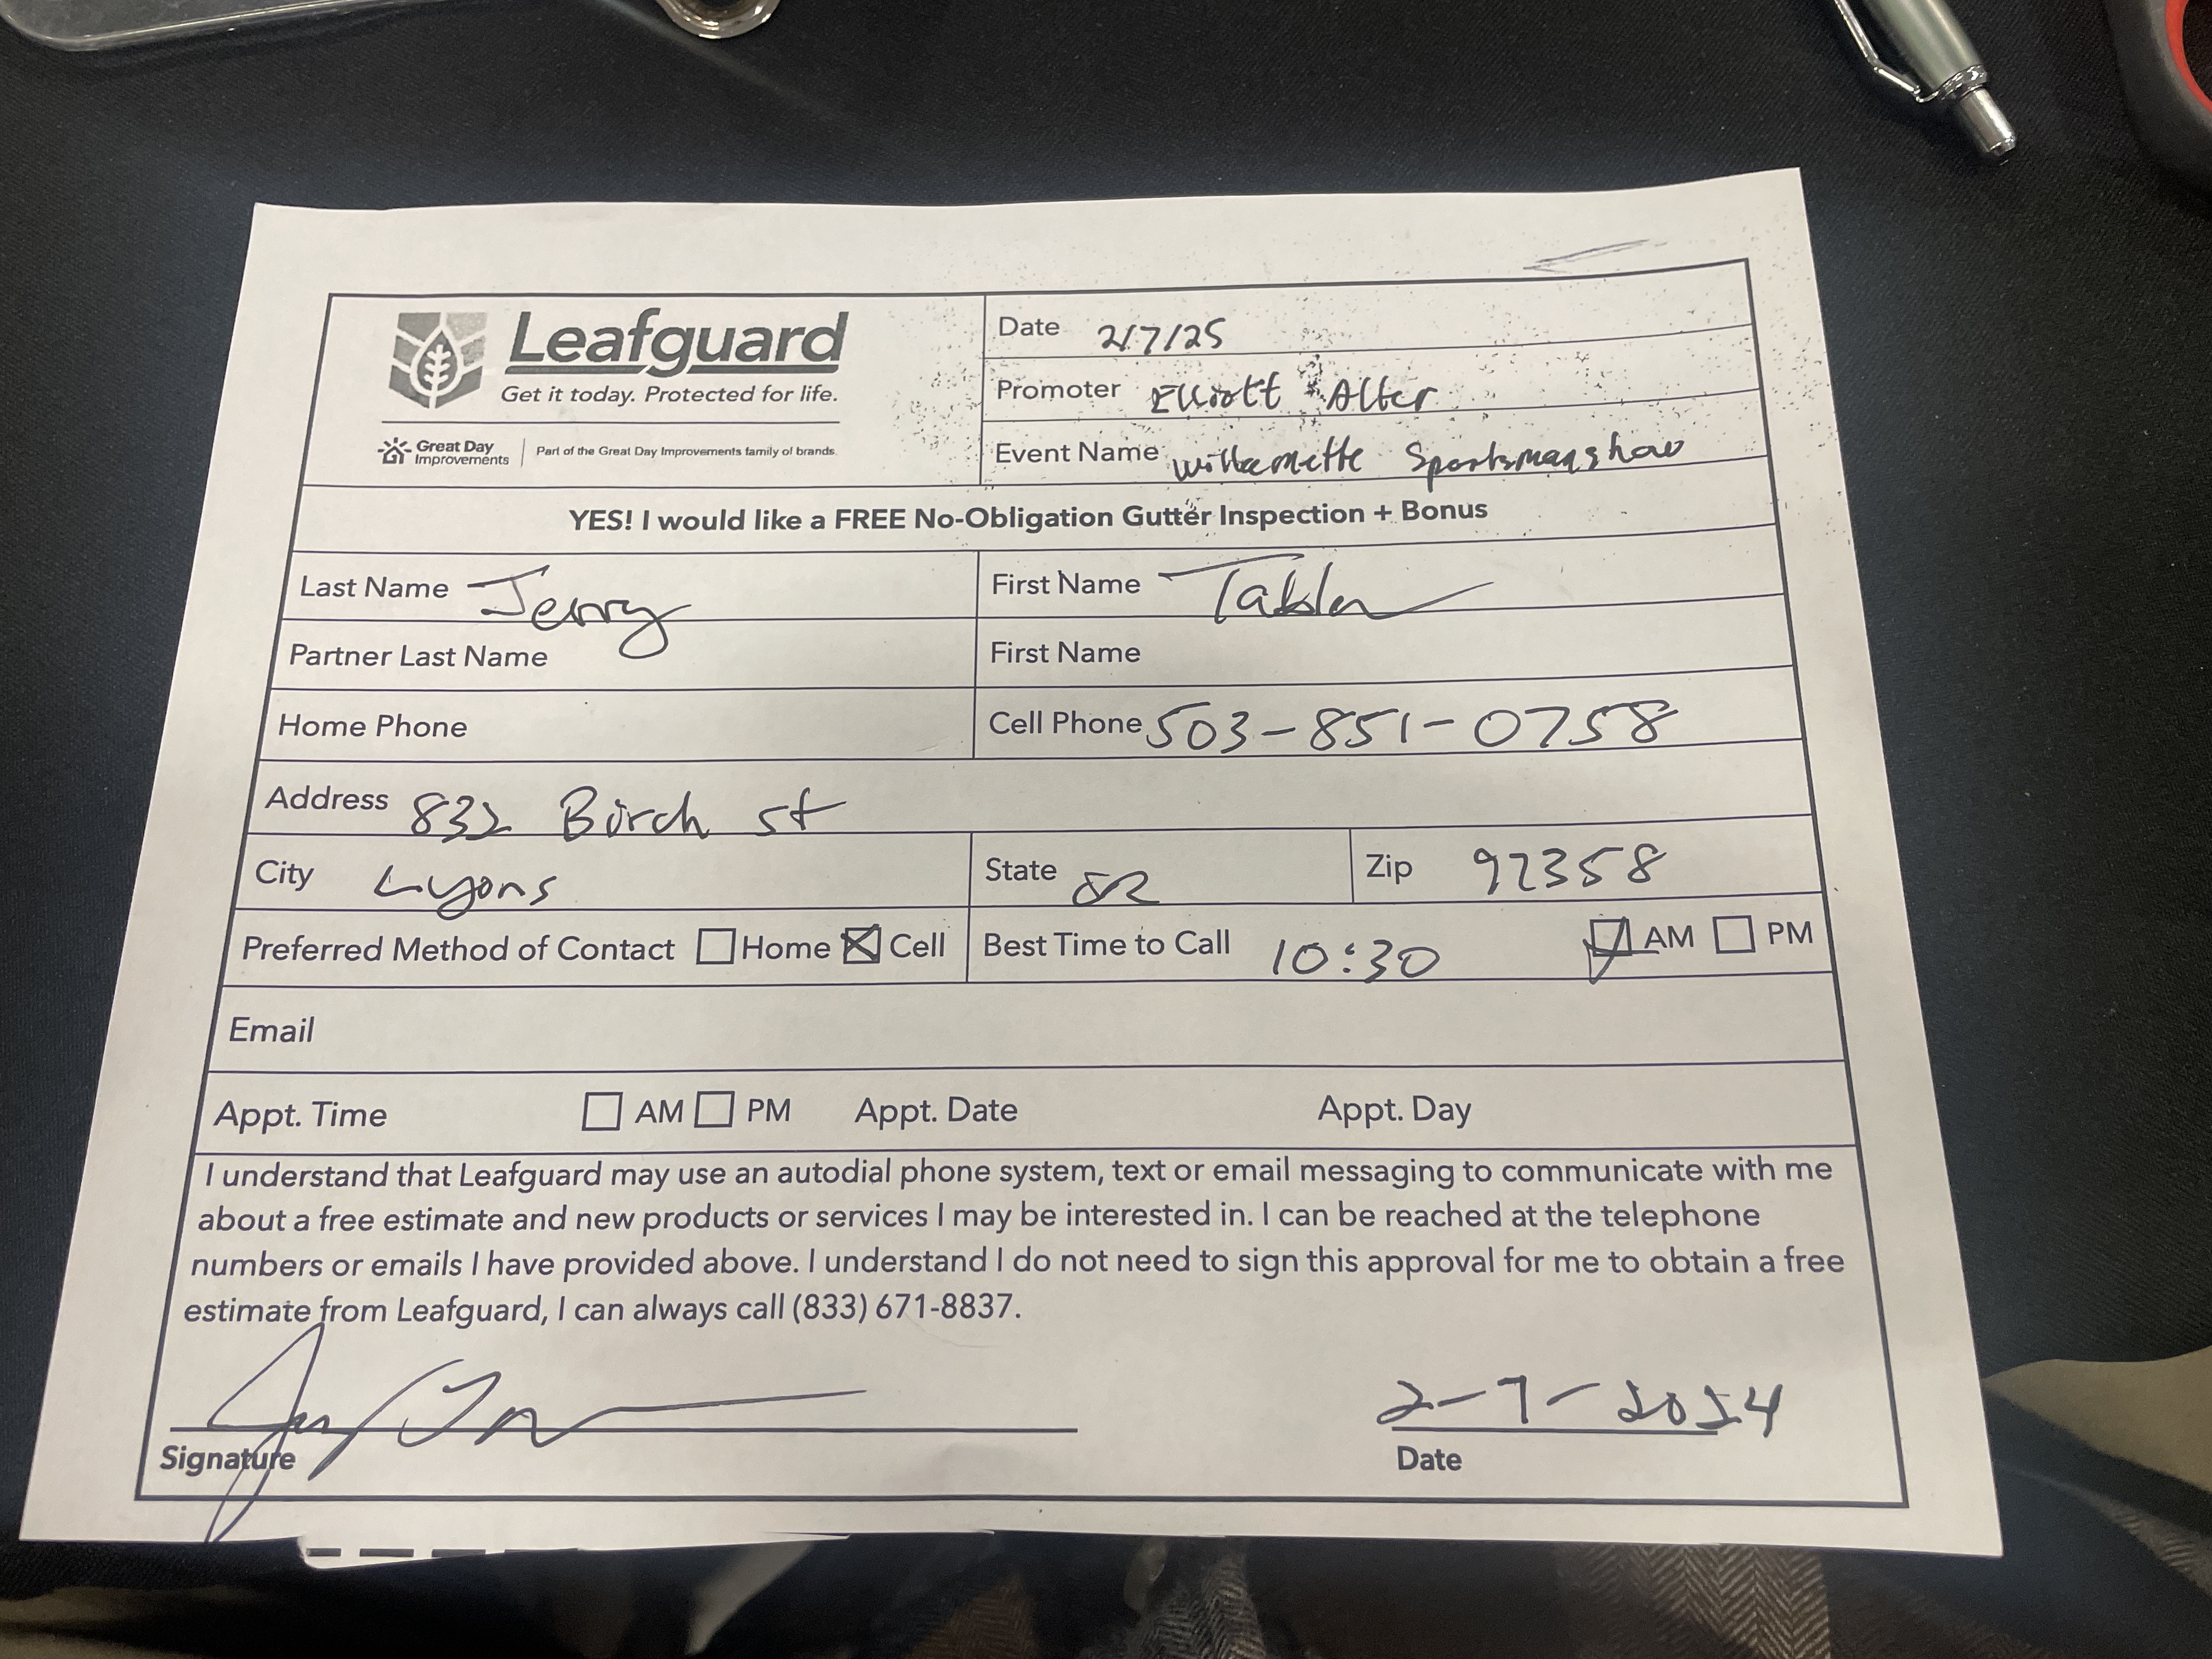 Leafguard
Get it today. Protected for life.
Great Day Improvements | Part of the Great Day Improvements family of brands.
Date 2/7/25
Promoter Elliott Alber
Event Name Willamette Sportsman show
YES! I would like a FREE No-Obligation Gutter Inspection + Bonus
Last Name Jerry First Name
Partner Last Name First Name
Home Phone Cell Phone 503-851-0758
Address 832 Birch st
City Lyons State OR Zip 97358
Preferred Method of Contact Home Cell Best Time to Call 10:30 AM PM
Email
Appt. Time AM PM Appt. Date Appt. Day
I understand that Leafguard may use an autodial phone system, text or email messaging to communicate with me
about a free estimate and new products or services I may be interested in. I can be reached at the telephone
numbers or emails I have provided above. I understand I do not need to sign this approval for me to obtain a free
estimate from Leafguard, I can always call (833) 671-8837.
2-7-2024
Signature Date